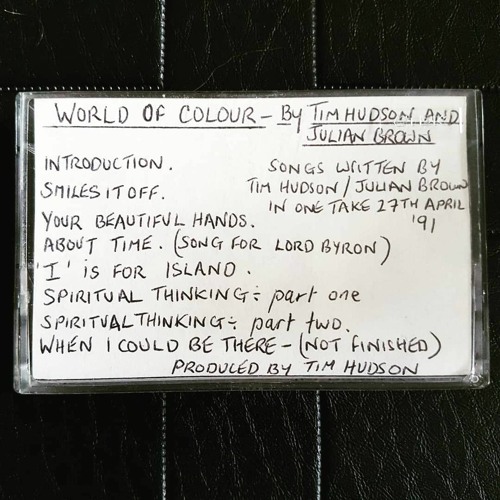 WORLD OF COLOUR - By TIM HUDSON AND
JULIAN BROWN
INTRODUCTION.
SMILES IT OFF.
SONGS WRITTEN BY
TIM HUDSON / JULIAN BROWN
IN ONE TAKE 27TH APRIL
'91
YOUR BEAUTIFUL HANDS.
ABOUT TIME. (SONG FOR LORD BYRON)
'I' IS FOR ISLAND.
SPIRITUAL THINKING ÷ part one
SPIRITUAL THINKING ÷ part two.
WHEN I COULD BE THERE - (NOT FINISHED)
PRODUCED BY TIM HUDSON